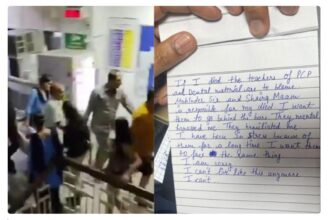 If I died the teachers of PCP
and Dental material are to blame.
Mahinder Sir and Shairg Maam
is responsible for my died. I want
them to go behind the bars. They mental
harassed me. They humiliated me
I have been in stress because of
them for a long time. I want them
to face the same thing
I am sorry
I can't live like this anymore
I cant